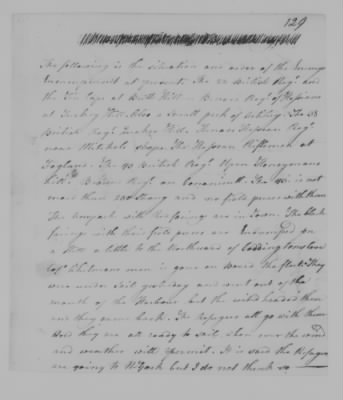 129
The following is the situation and order of the Enemys
Encampment at present. The 22 British Regt. and
the Fin Caps at Butts Hill — Bunau Regt. of Hessians
at Turkey Hill. Also a small park of Artilery. The 38
British Regt. Quaker Hill. Thenan Hessian Regt.
near Mitchels Shape. The Hessian Riflemen at
Foglans. The 43 British Regt. Upon Honeymans
hill. Browns Regt. on Cononicutt. The 43 is not
more than 200 Strong and no field pieces with them
The Anspach with Redfacings are in Town. The black
facings with their field pieces are Encamped on
a Hill a little to the Northward of Coddingtons Cove
Colo. Whitmans men is gone on board the fleet. They
were under Sail yesterday and went out of the
mouth of the Harbour but the wind headed them
and they came back. The refugees all go with them
And they are all ready to sail, when ever the wind
and weather will permit. It is said the Refugees
are going to N:York but I do not think so